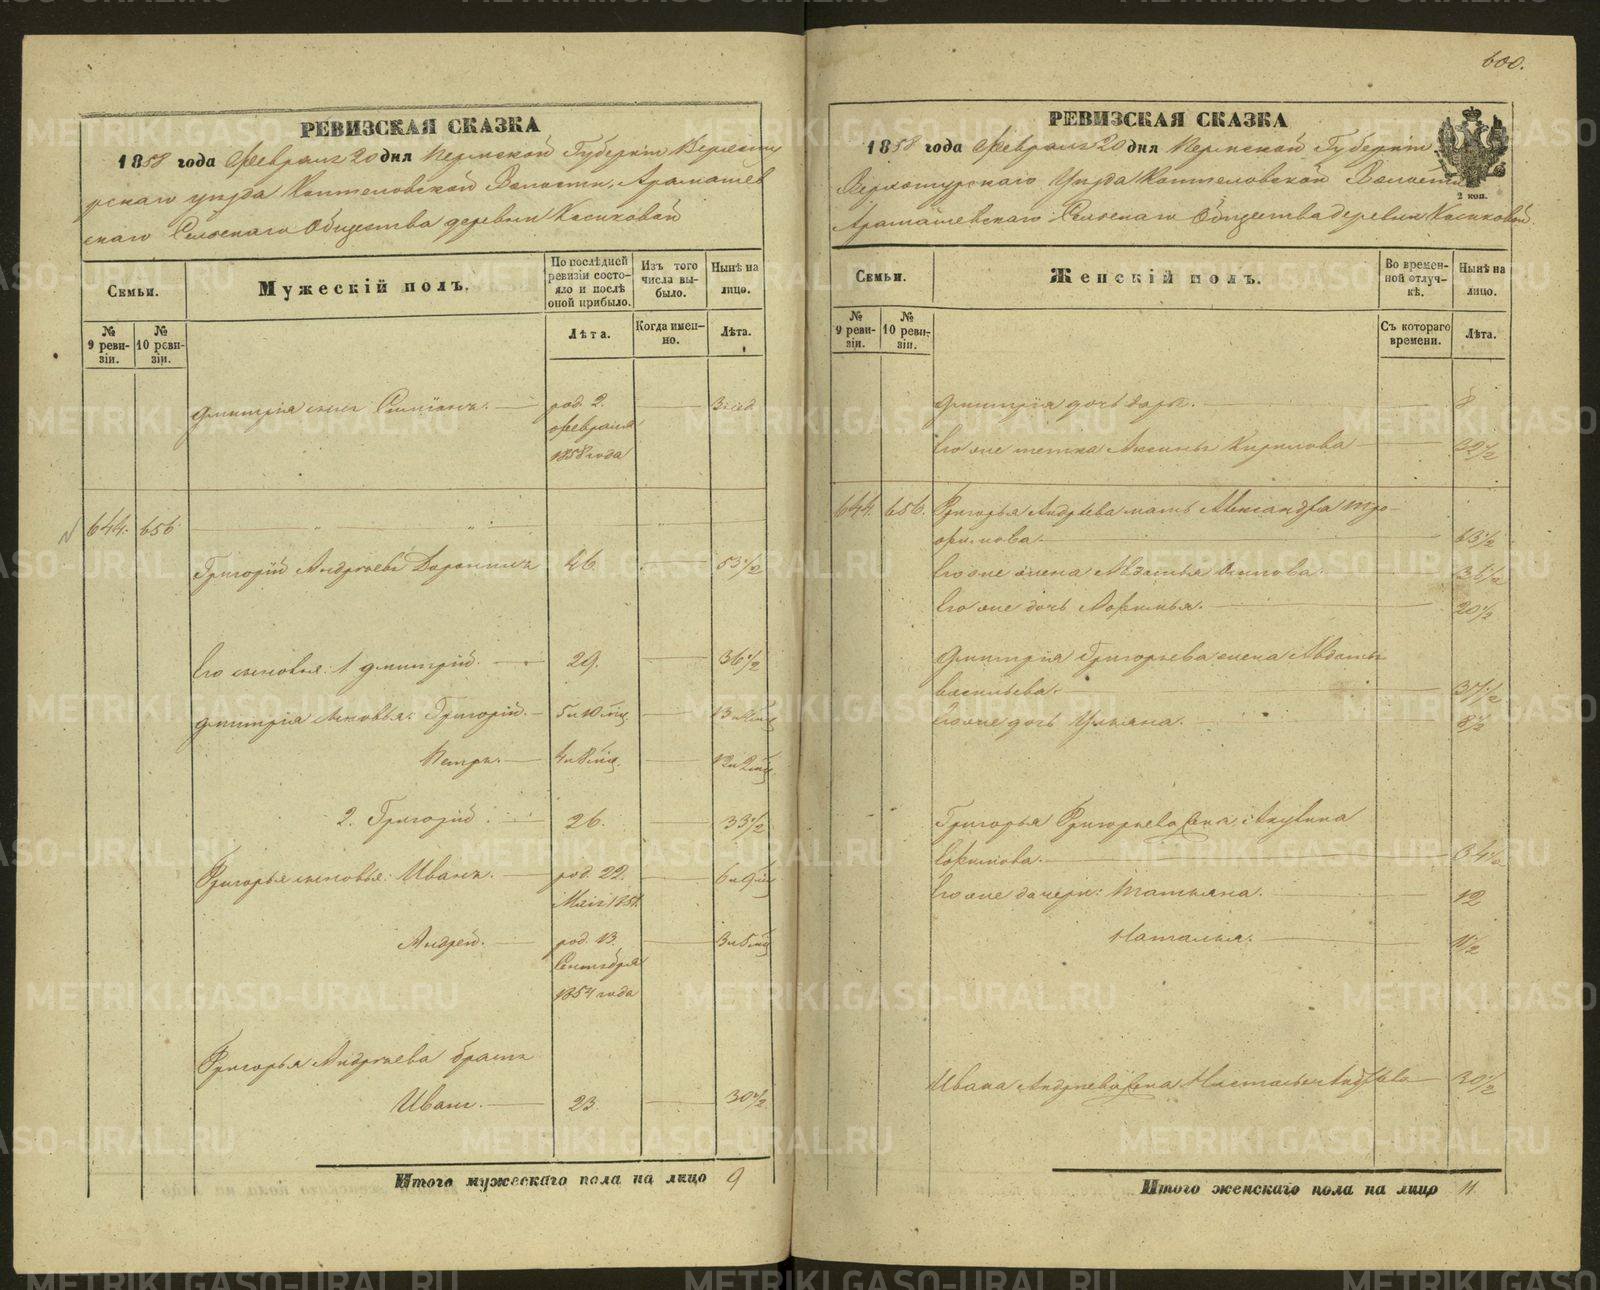 600.
РЕВИЗСКАЯ СКАЗКА
1858 года Февраля 20 дня Пермской Губерніи Верхоту
рскаго уѣзда Коптеловской Волости, Арамашев
скаго Сельскаго Общества деревни Косиковой
Семьи.
Мужескій полъ.
По послѣдней ревизіи состояло и послѣ оной прибыло.
Изъ того числа выбыло.
Нынѣ на лицо.
№ 9 ревизіи.
№ 10 ревизіи.
Лѣта.
Когда именно.
Лѣта.
Дмитрія сынъ Симіонъ. род. 2. Февраля 1858 года
644. 656
Григорій Андреевъ Доронинъ 46. 53 1/2
Его сыновья: 1 Дмитрій. 29. 36 1/2
Дмитрія сыновья: Григорій. 5 и 10 мѣс. 13 и 2 мѣс.
Петръ. 4 и 8 мѣс. 12 и 2 мѣс.
2. Григорій 26. 33 1/2
Григорья сыновья: Иванъ. род. 22. Мая 1851. 6 и 9 мѣс.
Андрей. род. 13. Сентября 1854 года 3 и 5 мѣс.
Григорья Андреева братъ
Иванъ. 23. 30 1/2
Итого мужескаго пола на лицо 9
РЕВИЗСКАЯ СКАЗКА
1858 года Февраля 20 дня Пермской Губерніи
Верхотурскаго Уѣзда Коптеловской Волости
Арамашевскаго Сельскаго Общества деревни Косиковой.
2 коп.
Семьи.
Женскій полъ.
Во временной отлучкѣ.
Нынѣ на лицо.
№ 9 ревизіи.
№ 10 ревизіи.
Съ котораго времени.
Лѣта.
Дмитрія дочь Дарья. 8
Его же тетка Аксинья Кирилова
644. 656. Григорья Андреева мать Александра Тро-
фимова. 65 1/2
Его же жена Авдотья Осипова. 36 1/2
Его же дочь Афимья. 20 1/2
Дмитрія Григорьева жена Авдотья
Васильева. 37 1/2
Его же дочь Ульяна. 8 1/2
Григорья Григорьева жена Акулина
Ефимова. 34 1/2
Его же дочери: Татьяна. 12
Наталья. 1 1/2
Ивана Андреева жена Настасья Андреева 30 1/2
Итого женскаго пола на лицо 11
METRIKI.GASO-URAL.RU